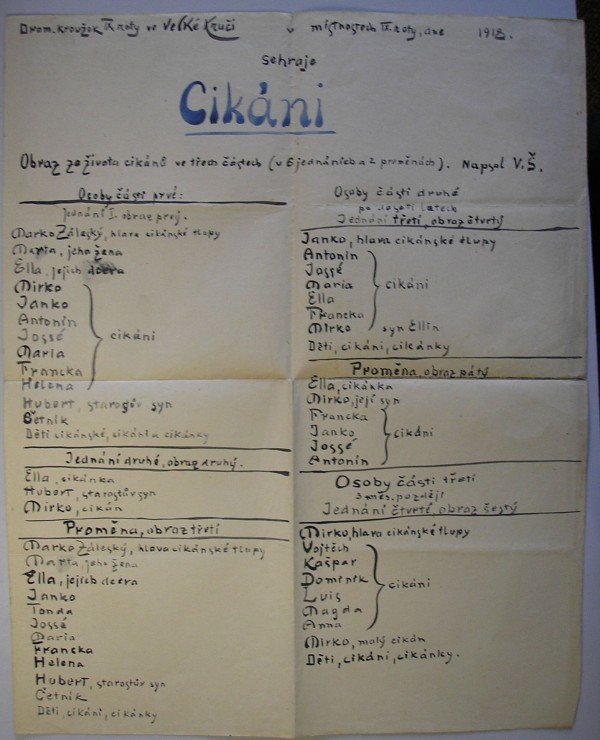 Dram. kroužek IX roty ve Velké Kruči v místnostech IX. roty, dne 1918.
sehraje
Cikáni
Obraz ze života cikánů ve třech částech (v 6 jednáních a 2 proměnách). Napsal V.Š.
Osoby části prvé:
jednání I. obraz prvý.
Marko Záleský, hlava cikánské tlupy
Maria, jeho žena
Ella, jejich dcera
Mirko
Janko
Antonín
Jossé
Maria
Francka
Helena
cikáni
Hubert, starostův syn
Četník
Děti cikánské, cikáni a cikánky
Jednání druhé, obraz druhý.
Ella, cikánka
Hubert, starostův syn
Mirko, cikán
Proměna, obraz třetí
Marko Záleský, hlava cikánské tlupy
Maria, jeho žena
Ella, jejich dcera
Janko
Tonda
Jossé
Maria
Francka
Helena
Hubert, starostův syn
Četník
Děti, cikáni, cikánky
Osoby části druhé
po deseti letech
Jednání třetí, obraz čtvrtý
Janko, hlava cikánské tlupy
Antonín
Jossé
Maria
Ella
Francka
cikáni
Mirko syn Ellin
Děti, cikáni, cikánky
Proměna, obraz pátý
Ella, cikánka
Mirko, její syn
Francka
Janko
Jossé
Antonín
cikáni
Osoby části třetí
3 měs. později
Jednání čtvrté, obraz šestý
Mirko, hlava cikánské tlupy
Vojtěch
Kašpar
Dominik
Luis
Magda
Anna
cikáni
Mirko, malý cikán
Děti, cikáni, cikánky.